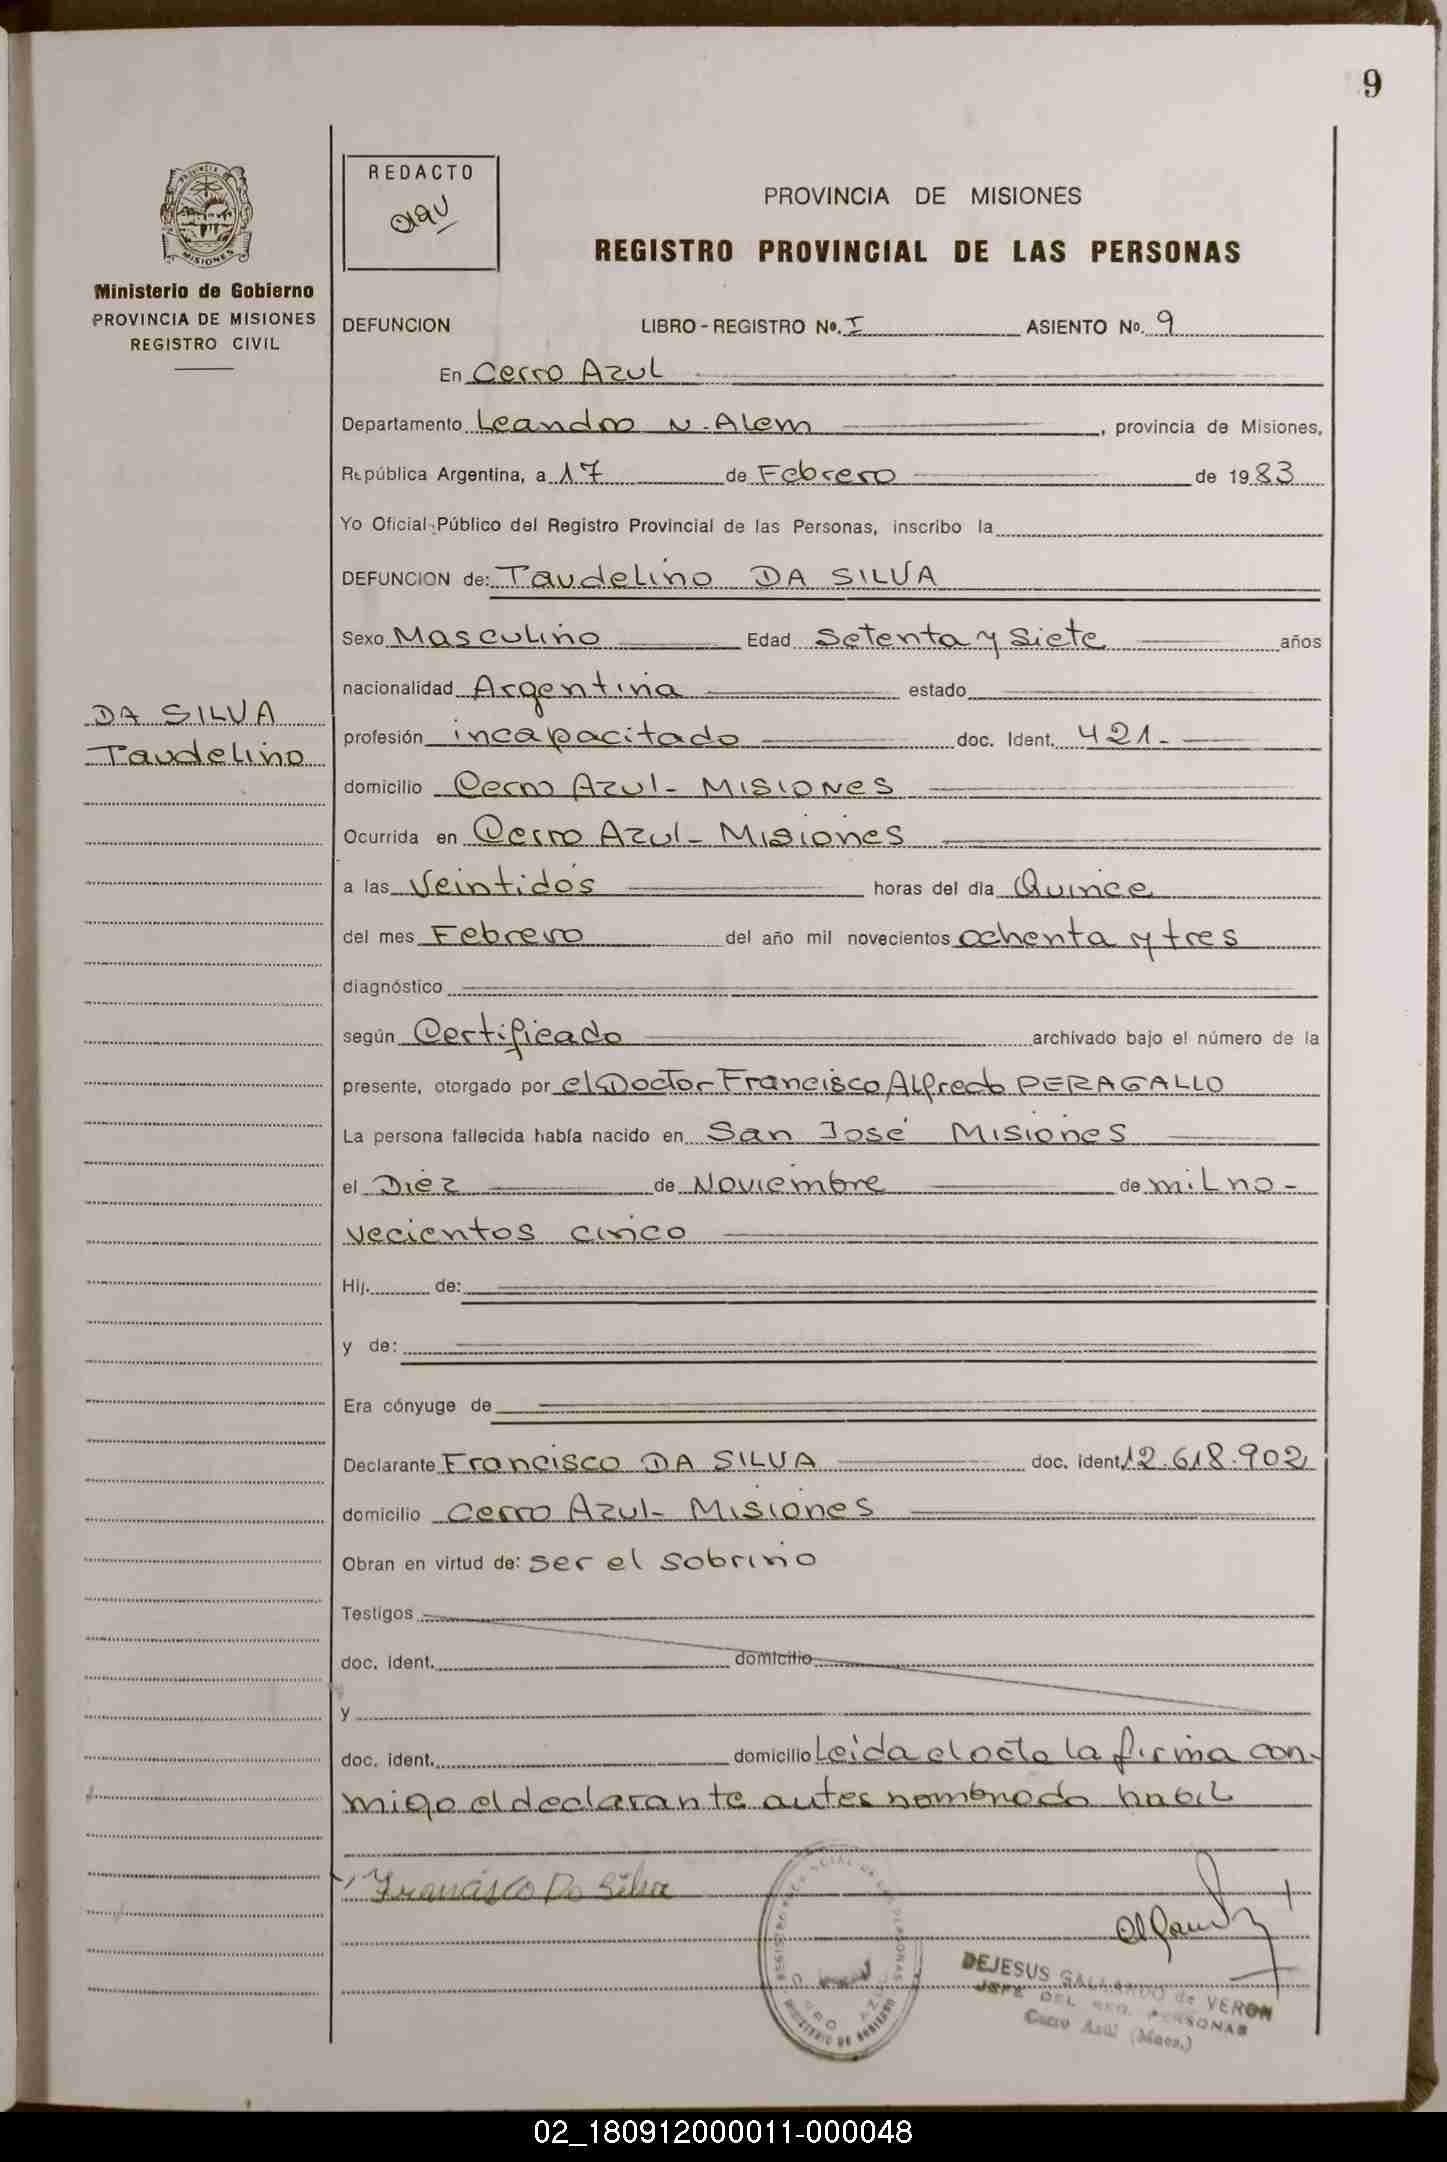 9
PROVINCIA DE MISIONES
Ministerio de Gobierno
PROVINCIA DE MISIONES
REGISTRO CIVIL
DA SILVA
Taudelino
REDACTO
PROVINCIA DE MISIONES
REGISTRO PROVINCIAL DE LAS PERSONAS
DEFUNCION LIBRO - REGISTRO Nº. I ASIENTO Nº. 9
En Cerro Azul
Departamento Leandro N. Alem, provincia de Misiones,
República Argentina, a 17 de Febrero de 1983
Yo Oficial Público del Registro Provincial de las Personas, inscribo la
DEFUNCION de: Taudelino DA SILVA
Sexo Masculino Edad Setenta y Siete años
nacionalidad Argentina estado
profesión incapacitado doc. Ident. 421.-
domicilio Cerro Azul - MISIONES
Ocurrida en Cerro Azul - Misiones
a las Veintidós horas del día Quince
del mes Febrero del año mil novecientos ochenta y tres
diagnóstico
según Certificado archivado bajo el número de la
presente, otorgado por el Doctor Francisco Alfredo PERAGALLO
La persona fallecida había nacido en San José Misiones
el Diez de Noviembre de mil no-
vecientos cinco
Hij. de:
y de:
Era cónyuge de
Declarante Francisco DA SILVA doc. ident 12.618.902
domicilio Cerro Azul - Misiones
Obran en virtud de: ser el sobrino
Testigos
doc. ident. domicilio
y
doc. ident. domicilio Leida el acta la firma con-
migo el declarante antes nombrado habil
Francisco Da Silva
DEJESUS GALLARDO de VERON
JEFE DEL REG. PERSONAS
Cerro Azul (Mnes.)
02_180912000011-000048